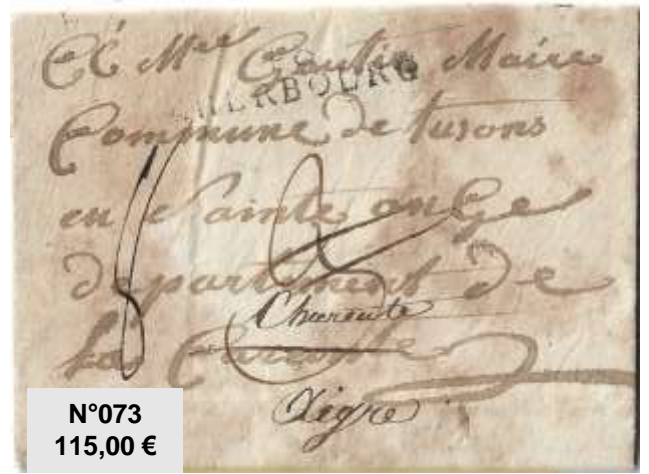 A Mr Cautie Maire
CHERBOURG
Commune de tusons
en Sainte onge
département de
Charente
La Charente
Aigre
N°073
115,00 €